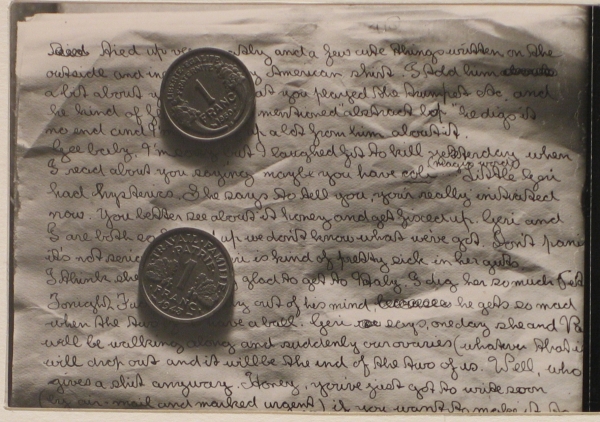 tied up very and a few cute things written on the
outside and in American shirt. I told him
a lot about you played the trumpet etc. and
he kind of mentioned "abstract bop" he digs it
no end and a lot from him about it.
Gee baby, I laughed fit to kill yesterday when
I read about you saying maybe you have (magic word) Little Geri
had hysterics. She says to tell you, your really initiated
now. You better see about it honey and get fixed up. Geri and
I are both up we don't know what we've got. Don't panic
it's not is kind of pretty sick in her guts
I think she glad to get to Italy. I dig her so much
Tonight out of his mind, he gets so mad
when the two have a ball. Geri says, one day she and
will be walking along and suddenly our ovaries (whatever that is
will drop out and it will be the end of the two of us. Well, who
gives a shit anyway. Honey, you've just got to write soon
(by air-mail and marked urgent) if you want to make it to
1
FRANC
1
FRANC
1943